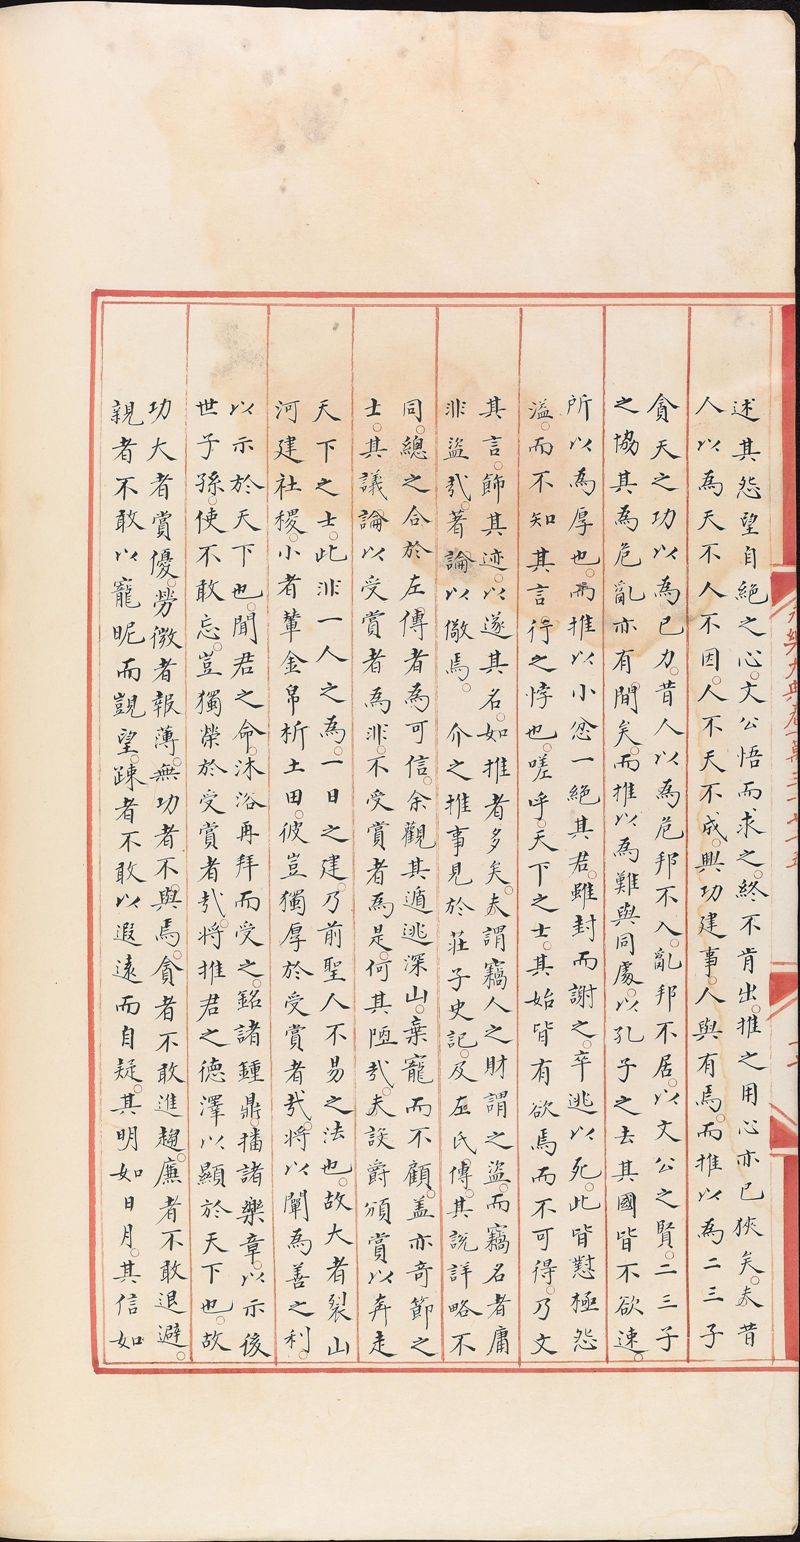 述其怨望自絶之心。文公悟而求之。終不肯出。推之用心亦已狹矣。夫昔
人以為天不人不因。人不天不成。興功建事。人與有焉。而推以為二三子
貪天之功以為已力。昔人以為危邦不入。亂邦不居。以文公之賢。二三子
之協其為危亂亦有間矣。而推以為難與同處。以孔子之去其國皆不欲速。
所以為厚也。而推以小忿一絶其君。雖封而謝之。卒逃以死。此皆懟極怨
溢。而不知其言得之悖也。嗟呼。天下之士。其始皆有欲焉而不可得。乃文
其言。飾其迹。以遂其名。如推者多矣。夫謂竊人之財謂之盜。而竊名者庸
非盜㢤。著論以儆焉。 介之推事見於莊子史記。及左氏傳。其説詳略不
同。總之合於左傳者為可信。余觀其遁逃深山。棄寵而不顧。盖亦竒節之
士。其議論以受賞者為非。不受賞者為是。何其陋㢤。夫設爵頒賞以奔走
天下之士。此非一人之為。一日之建。乃前聖人不易之法也。故大者裂山
河建社稷。小者輦金帛析土田。彼豈獨厚於受賞者㢤。將以闡為善之利。
以示於天下也。聞君之命。沐浴再拜而受之。銘諸鍾鼎。播諸樂章。以示後
世子孫。使不敢忘。豈獨榮於受賞者㢤。將推君之德澤以顯於天下也。故
功大者賞優。勞微者報薄。無功者不與焉。貪者不敢進趨。廉者不敢退避。
親者不敢以寵昵而覬望。踈者不敢以遐遠而自疑。其明如日月。其信如